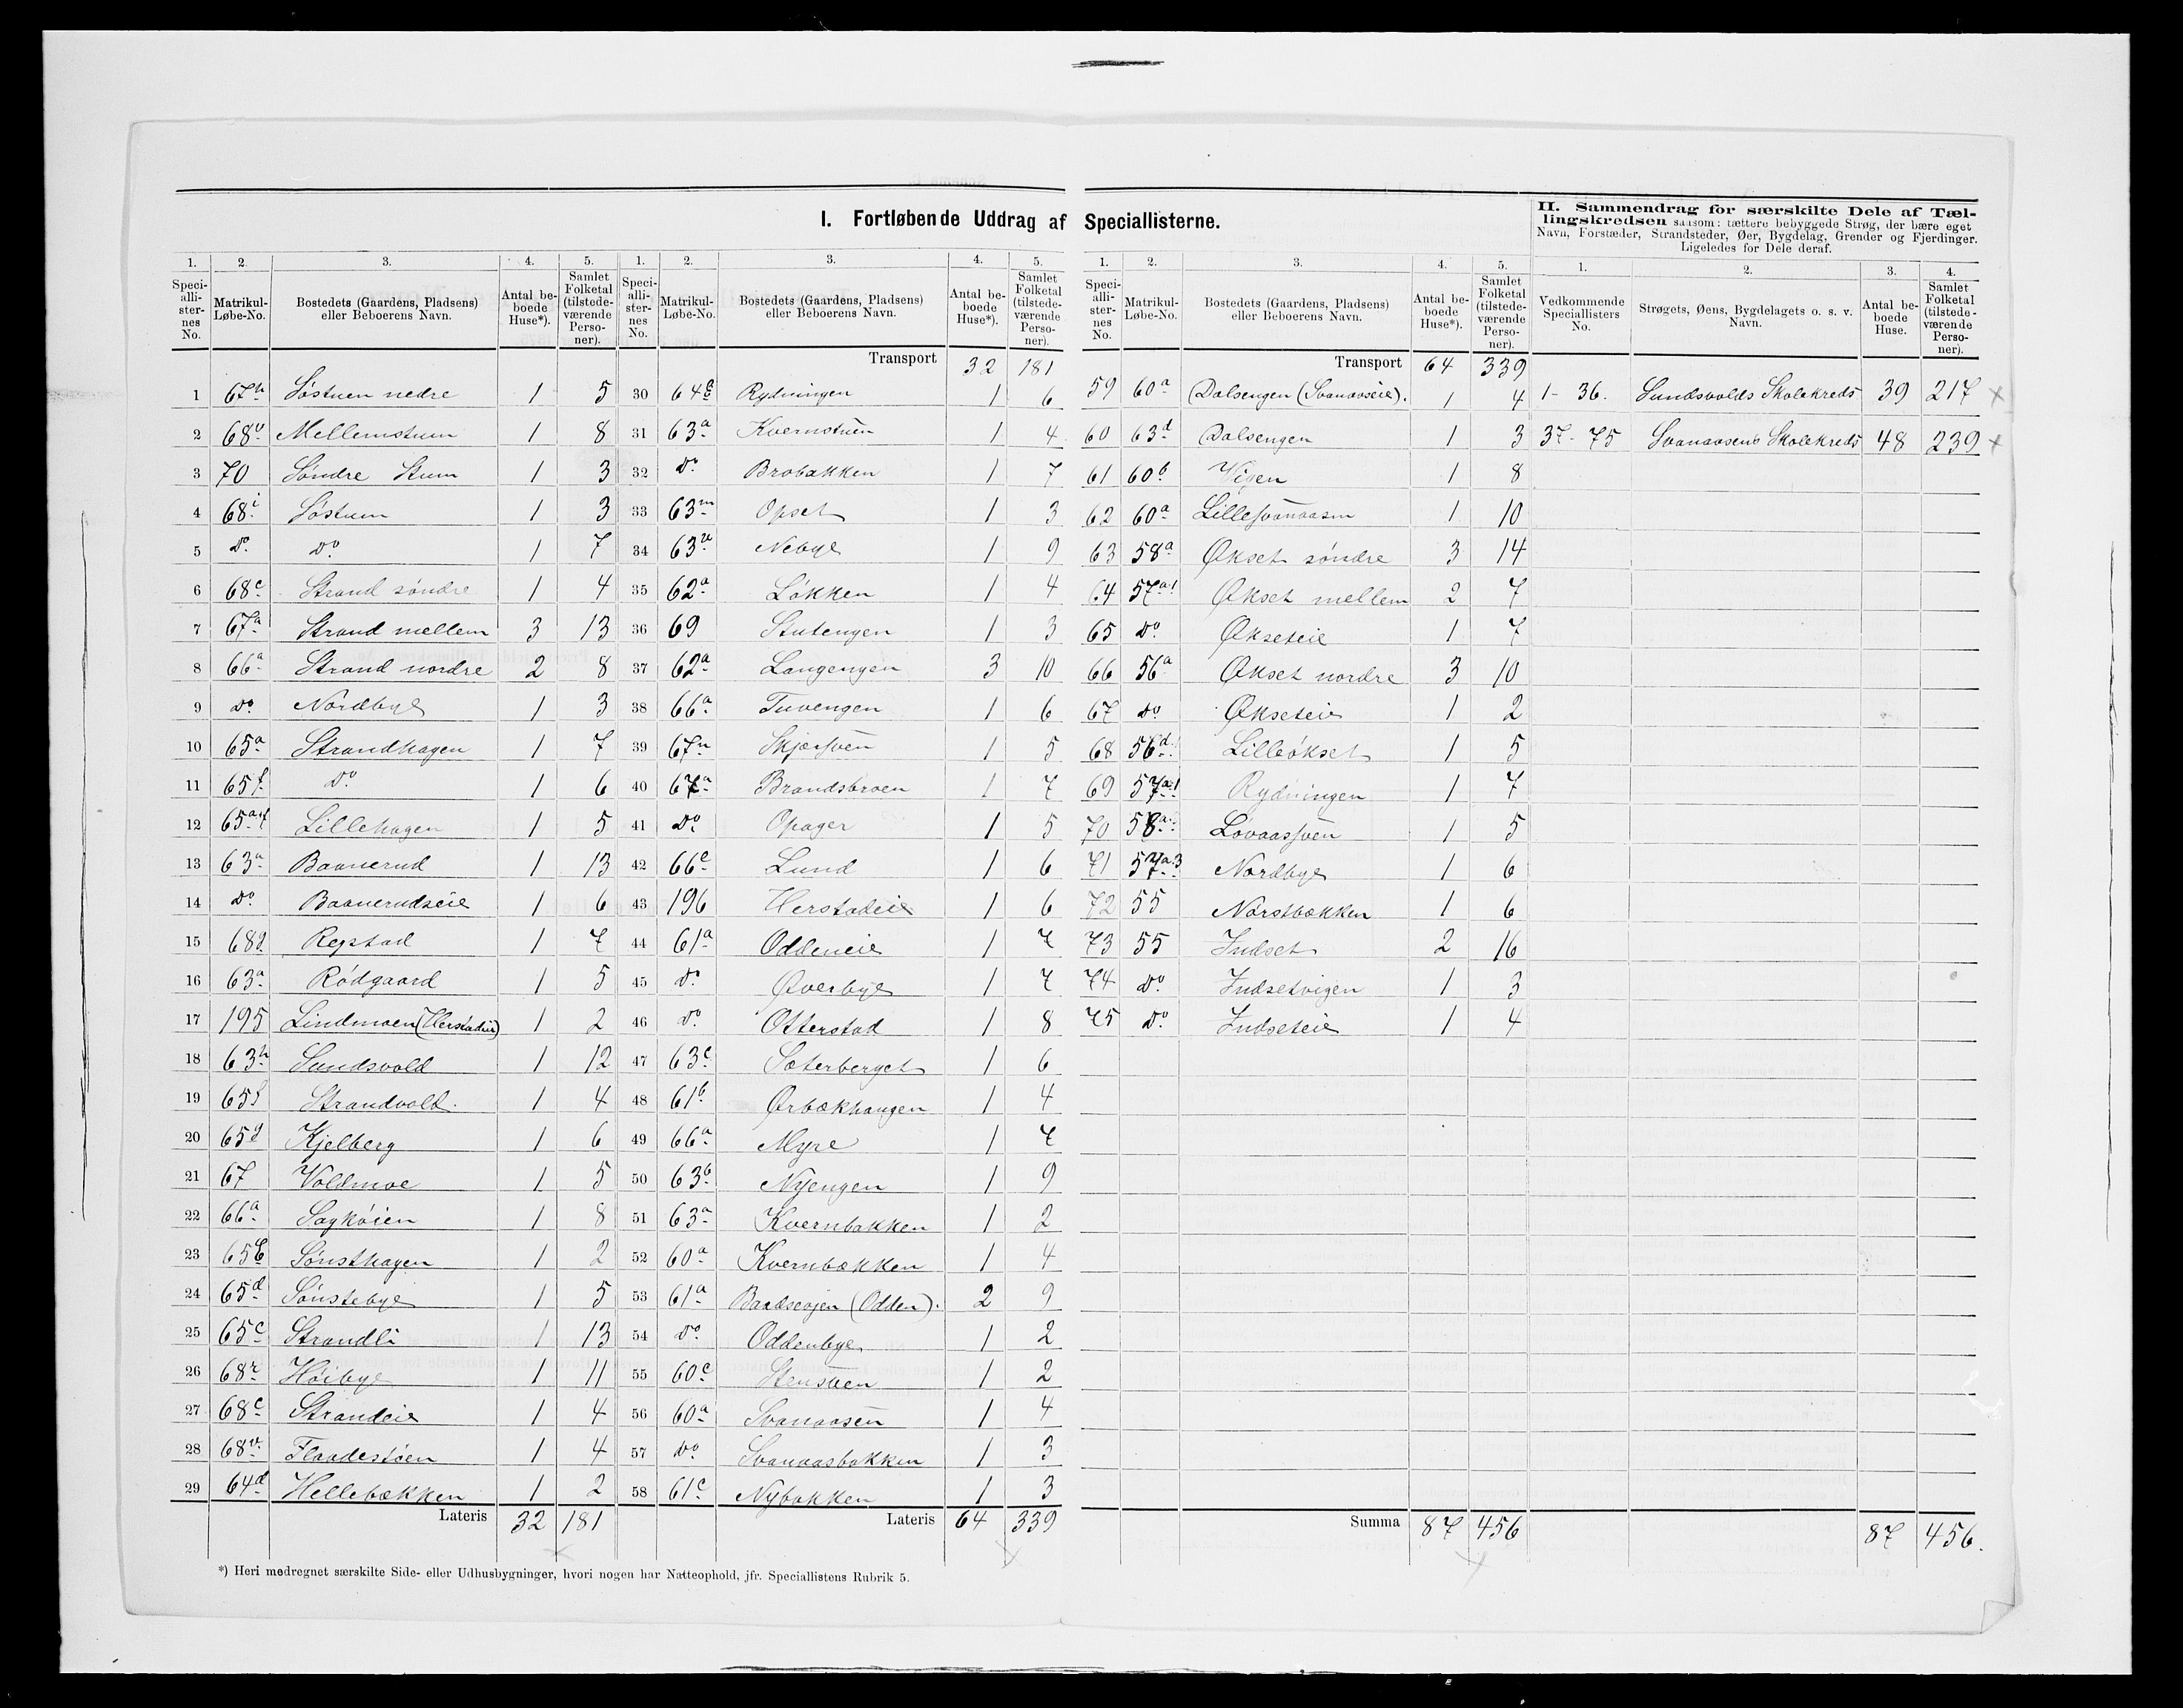 I. Fortløbende Uddrag af Speciallisterne.
II. Sammendrag for særskilte Dele af Tæl-
lingskredsen saasom: tættere bebyggede Strøg, der bære eget
Navn, Forstæder, Strandsteder, Øer, Bygdelag, Grender og Fjerdinger.
Ligeledes for Dele deraf.
1. 2. 3. 4. 5. 1. 2. 3. 4. 5. 1. 2. 3. 4. 5. 1. 2. 3. 4.
Speciallisternes No. Matrikul-Løbe-No. Bostedets (Gaardens, Pladsens) eller Beboerens Navn. Antal beboede Huse*). Samlet Folketal (tilstedeværende Personer).
Speciallisternes No. Matrikul-Løbe-No. Bostedets (Gaardens, Pladsens) eller Beboerens Navn. Antal beboede Huse*). Samlet Folketal (tilstedeværende Personer).
Speciallisternes No. Matrikul-Løbe-No. Bostedets (Gaardens, Pladsens) eller Beboerens Navn. Antal beboede Huse*). Samlet Folketal (tilstedeværende Personer).
Vedkommende Speciallisters No. Strøgets, Øens, Bygdelagets o. s. v. Navn. Antal beboede Huse. Samlet Folketal (tilstedeværende Personer).
1 67h Søstuen nedre 1 5
2 68v Mellemstum 1 8
3 70 Søndre Stum 1 3
4 68i Søstum 1 3
5 do do 1 7
6 68c Strand søndre 1 4
7 67a Strand mellem 3 13
8 66a Strand nordre 2 8
9 do Nordbye 1 3
10 65a Strandhagen 1 7
11 65f do 1 6
12 65a+f Lillehagen 1 5
13 63a Baanerud 1 13
14 do Baanerudseie 1 6
15 68g Repstad 1 7
16 63a Rødgaard 1 5
17 195 Lindmoen (Herstadeie) 1 2
18 63h Sundsvold 1 12
19 65f Strandvold. 1 4
20 65g Kjelberg 1 6
21 67 Voldmoe 1 5
22 66a Sagkøien 1 8
23 65b Sønsthagen 1 2
24 65d Sønstebye 1 5
25 65c Strandli 1 13
26 68r Høibye 1 11
27 68c Strandeie 1 4
28 68v Flaadestøen 1 4
29 64d Hellebækken 1 2
Lateris 32 181
Transport 32 181
30 64c Rydningen 1 6
31 63a Kvernstuen 1 4
32 do Brobakken 1 7
33 63m Opset 1 3
34 63n Nebye 1 9
35 62a Løkken 1 4
36 69 Stutengen 1 3
37 62a Langengen 3 10
38 66a Tuvengen 1 6
39 67n Skjørsven 1 5
40 67a Brandsbroen 1 7
41 do Opager 1 5
42 66e Lund 1 6
43 196 Herstadeie 1 6
44 61a Oddeneie 1 7
45 do Øverbye 1 7
46 do Otterstad 1 8
47 63c Sæterberget 1 6
48 61b Ørbækhaugen 1 4
49 66a Myre 1 7
50 63b Nyengen 1 9
51 63a Kvernbakken 1 2
52 60a Kvernbækken 1 4
53 61a (Odden). 2 9
54 do Oddenbye 1 2
55 60c Stenstuen 1 2
56 60a Svanaasen 1 4
57 do Svanaasbakken 1 3
58 61c Nybakken 1 3
Lateris 64 339
Transport 64 339
59 60a Dalsengen (Svanaaseie). 1 4
60 63d Dalsengen 1 3
61 60b Vigen 1 8
62 60a Lillesvanaasen 1 10
63 58a Økset søndre 3 14
64 57a.1 Økset mellem 2 7
65 do Økseteie 1 7
66 56a Økset nordre 3 10
67 do Økseteie 1 2
68 56d Lilleøkset 1 5
69 57a.1 Rydningen 1 7
70 58a Løvaassven 1 5
71 57a.3 Nordbye 1 6
72 55 Nørstbækken 1 6
73 55 Indset 2 16
74 do Indsetvigen 1 3
75 do Indseteie 1 4
Summa 87 456
1-36. Sundsvolds Skolekreds 39 217 ×
37-75 Svanaasens Skolekreds 48 239 ×
87 456.
*) Heri medregnet særskilte Side- eller Udhusbygninger, hvori nogen har Natteophold, jfr. Speciallistens Rubrik 5.